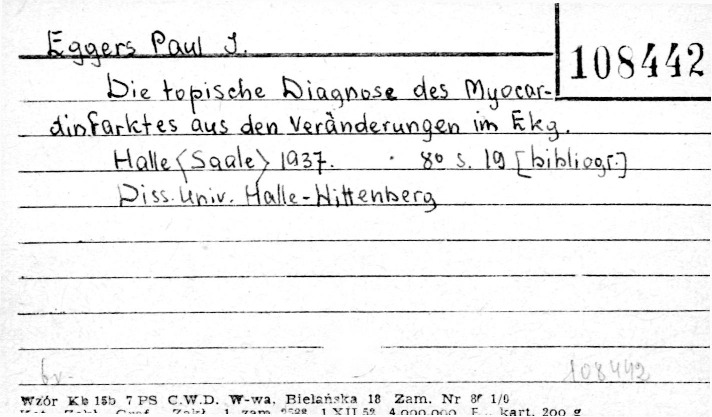 Eggers Paul J.
108442
Die topische Diagnose des Myocar-
dinfarktes aus den Veränderungen im Ekg.
Halle <Saale> 1937. 8° S. 19 [bibliogr.]
Diss. Univ. Halle-Wittenberg
br.
108442
Wzór Kb 15b 7 PS C.W.D. W-wa, Bielańska 18 Zam. Nr 1/0
Zakł. Graf. Zakł. 1 zam. 1 XII 52 4.000.000 kart. 200 g